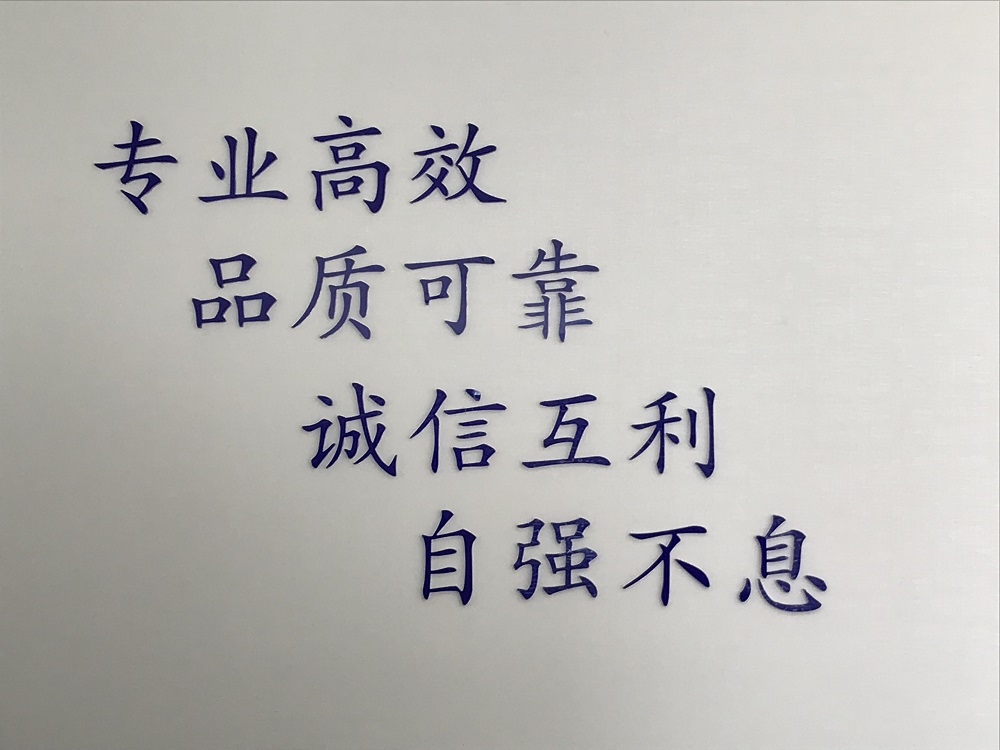 专业高效
品质可靠
诚信互利
自强不息